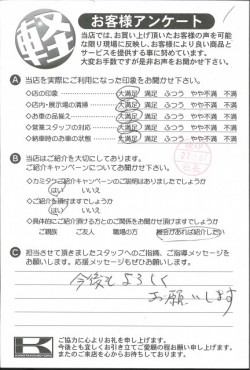 軽
お客様アンケート
当店では、お買い上げ頂いたお客様の声を可能
な限り現場に反映し、お客様により良い商品と
サービスを提供する事に努めています。
大変お手数ですが是非お声をお聞かせ下さい。
A 当店を実際にご利用になった印象をお聞かせ下さい。
◇店の印象 大満足 満足 ふつう やや不満 不満
◇店内・展示場の清掃 大満足 満足 ふつう やや不満 不満
◇お車の品揃え 大満足 満足 ふつう やや不満 不満
◇営業スタッフの対応 大満足 満足 ふつう やや不満 不満
◇納車時のお車の状態 大満足 満足 ふつう やや不満 不満
B 当店はご紹介を大切にしております。
ご紹介キャンペーンについてお聞かせ下さい。
◇カミタケご紹介キャンペーンのご説明はありましたでしょうか
はい いいえ
◇ご紹介を頂けますでしょうか
はい いいえ
◇具体的にご紹介頂ける方とのご関係をお聞かせ頂けますでしょうか
ご親戚 ご友人 職場の方 機会があれば紹介したい
C 担当させて頂きましたスタッフへのご指摘、ご指導メッセージを
お願いします。応援メッセージもぜひお願いします。
今後もよろしく
お願いします
K
ご協力に心よりお礼を申し上げます。
今後とも宜しくお引き立てご愛顧の程お願い申し上げます。
またのご来店を心からお待ちしております。